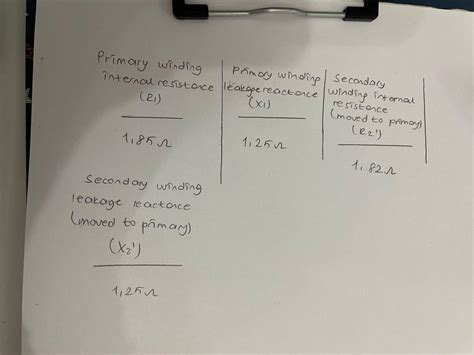 Primary winding
internal resistance
(R1)
1,85Ω
Primary winding
leakage reactance
(X1)
1,25Ω
Secondary
winding internal
resistance
(moved to primary)
(R2')
1,82Ω
Secondary winding
leakage reactance
(moved to primary)
(X2')
1,25Ω